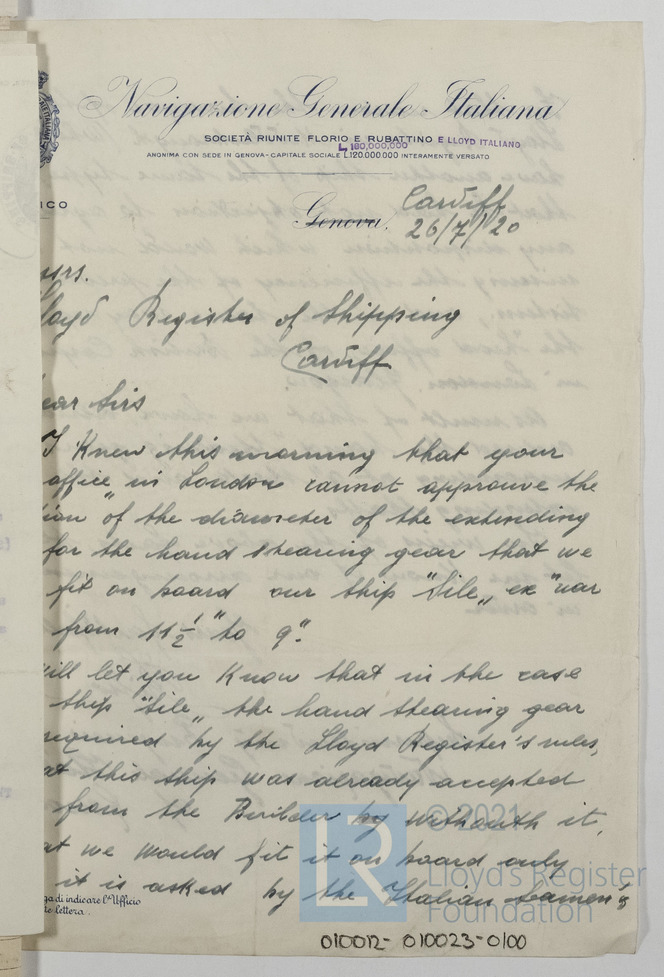 Navigazione Generale Italiana
SOCIETÀ RIUNITE FLORIO E RUBATTINO E LLOYD ITALIANO
L 180,000,000
ANONIMA CON SEDE IN GENOVA - CAPITALE SOCIALE L.120.000.000 INTERAMENTE VERSATO
ICO
Genova,
Cardiff
26/7/20
Register of Shipping
Cardiff
ear Sirs
I Knew this morning that your
office in London cannot approuve the
ion" of the diameter of the extending
for the hand stearing gear that we
fit on board our ship "Sile„ ex "War
from 11 1/2" to 9".
ill let you Know that in the case
ship "Sile„ the hand stearing gear
required by the Lloyd Register's rules,
at this ship was already accepted
from the Builder by withouth it,
at we would fit it on board only
it is asked by the Italian Seamen's
ga di indicare l'Ufficio
te lettera.
© 2021
LR
Lloyd's Register
Foundation
010012-010023-0100